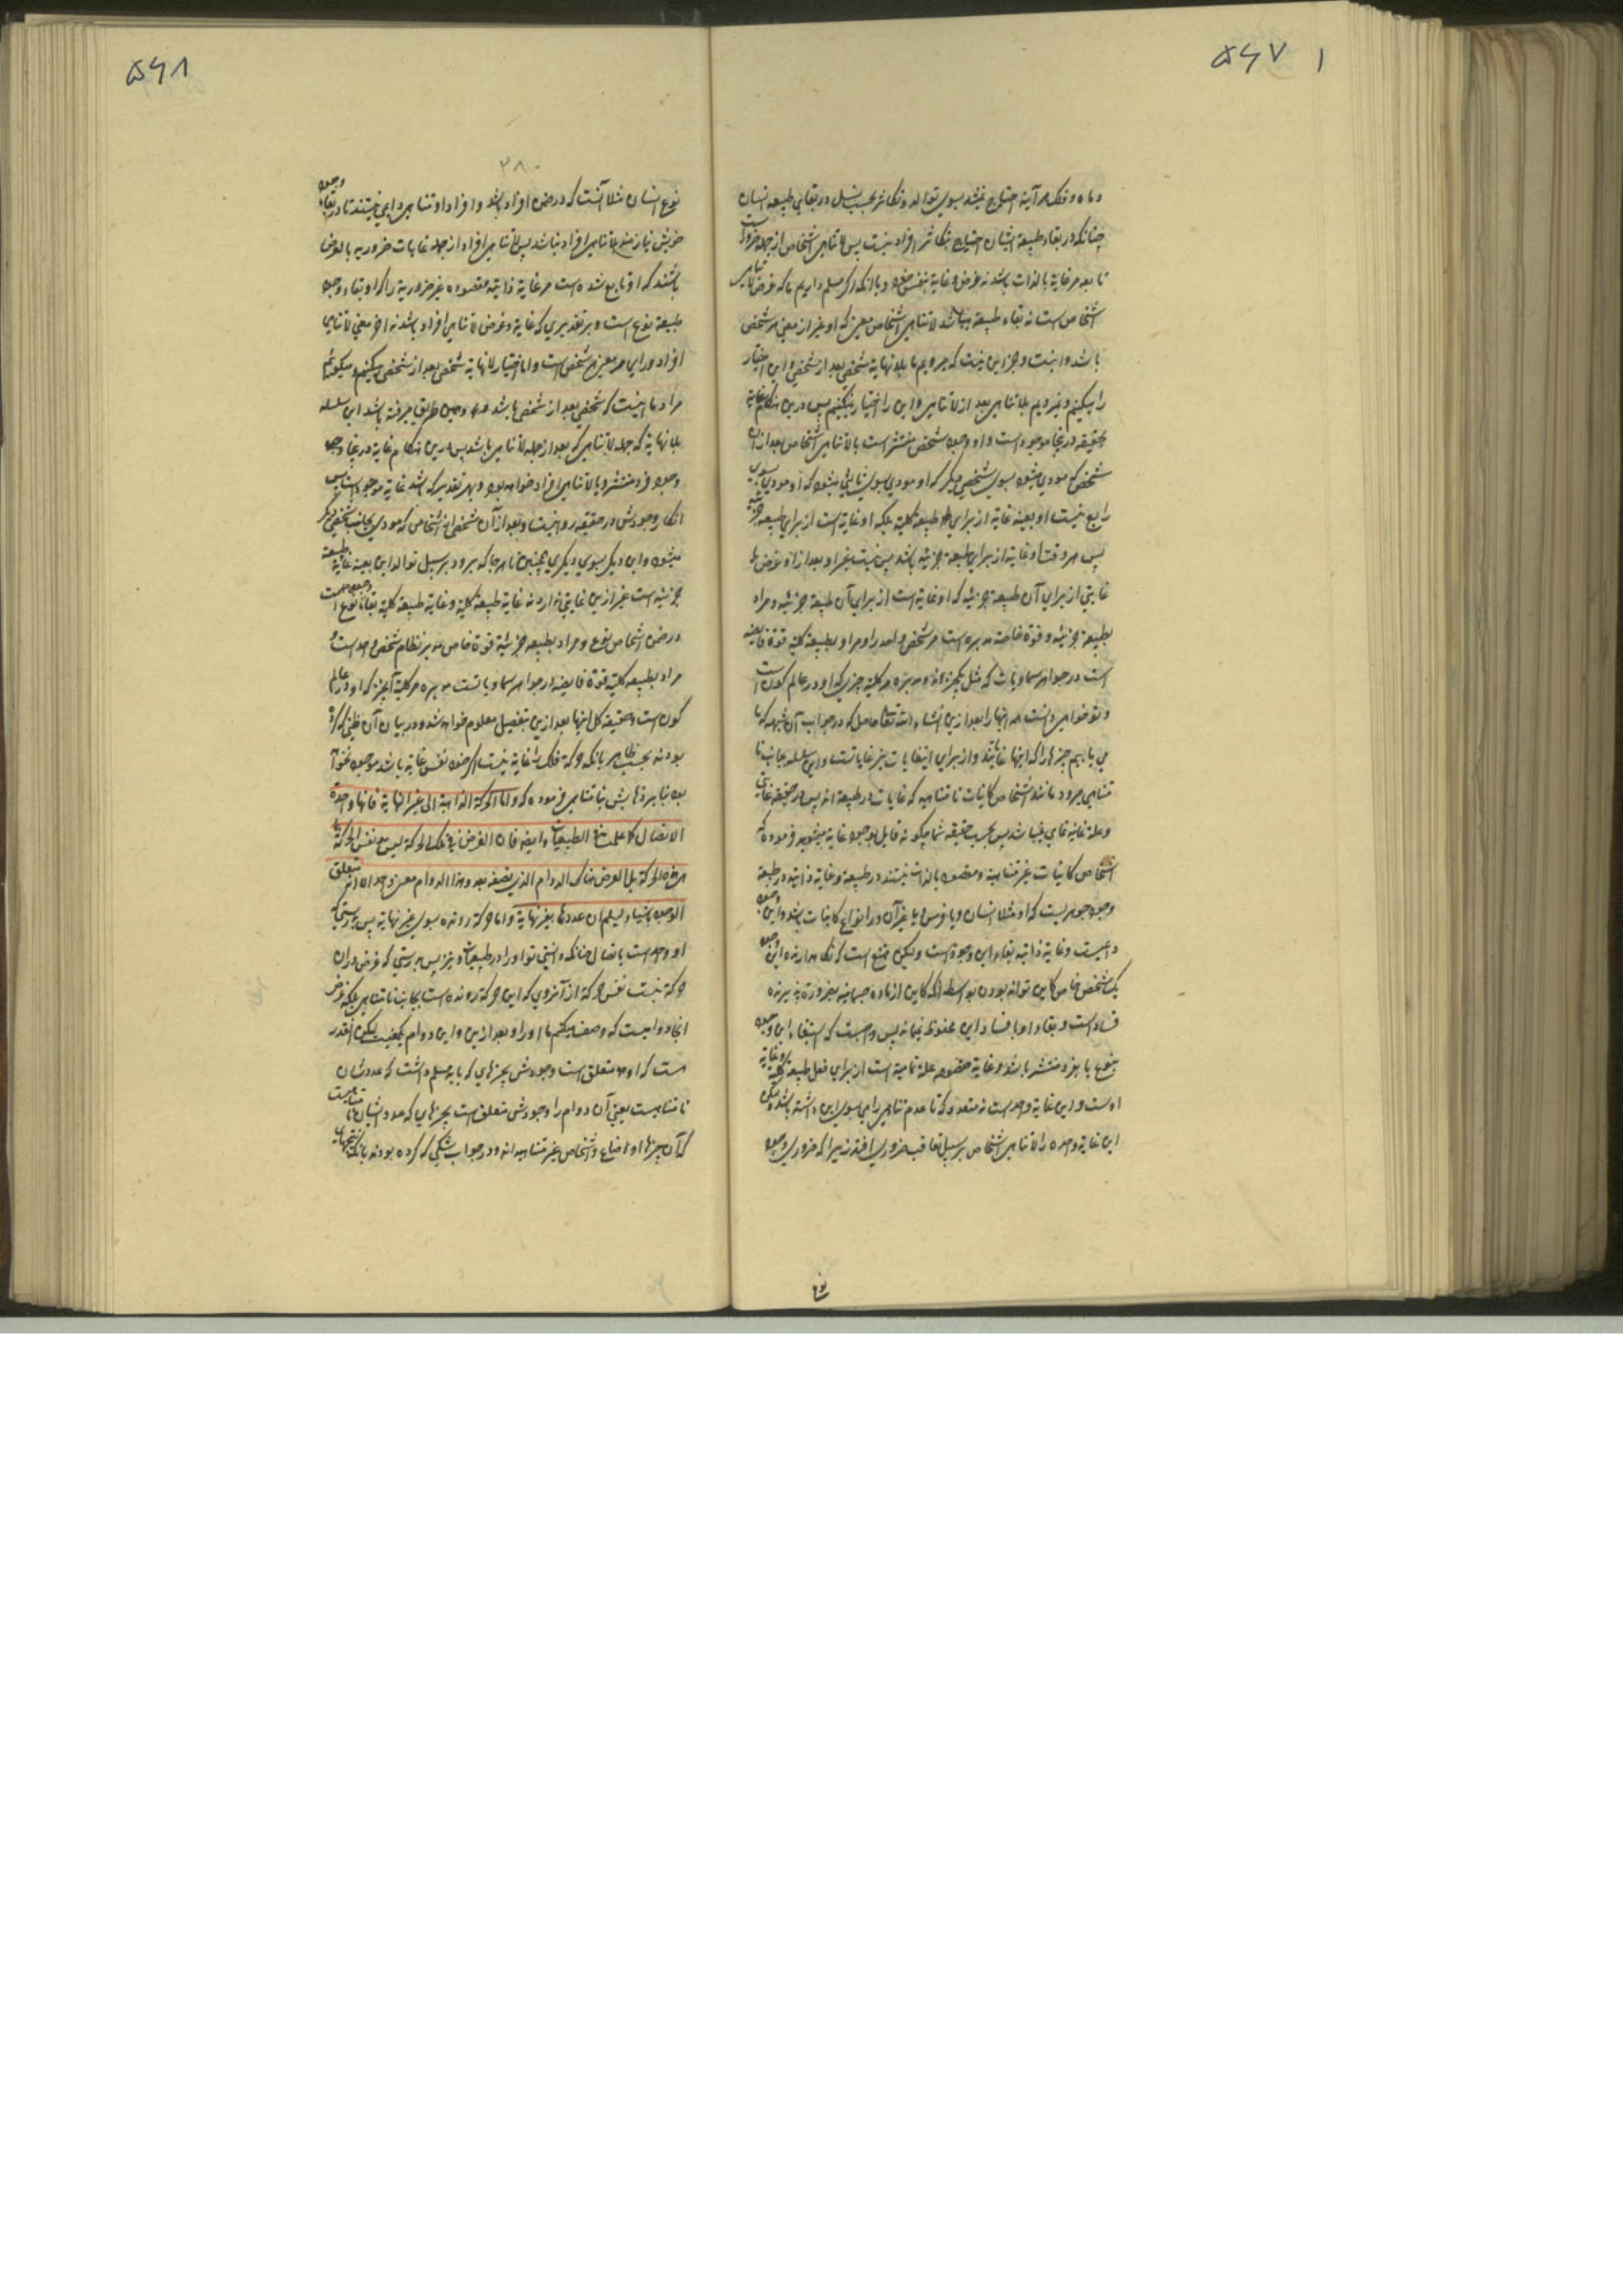 ۵۶۷ ۱
و ماه و فلک هر آینه احتیاج نمیشد بسوی توالد و تکاثر بحسب نسل و در بقای طبیعه انسان
چنانکه در بقاء طبیعة ایشان احتیاج بتکاثر افراد نیست پس لا تناهی اشخاص از جمله ضروریست
تا بعد مر غایة بالذات باشد نه غرض و غایة بنفس خود و با آنکه اگر مسلم داریم ما که غرض لا تناهی
اشخاص است نه بقاء طبیعة میباشد لا تناهی اشخاص معنی که او غیر از معنی هر شخص
باشد و اینست و جز این نیست که میرویم ما بلا نهایة شخصی بعد از شخصی و این اختیار
را میکنیم و نمیرویم بلا تناهی بعد از لا تناهی و این را اختیار نمیکنیم پس درین هنگام غایة
بحقیقه درینجا موجود است و او وجود شخص منتشر است یا لا تناهی اشخاص بعد از آن
شخص که مودی میشود بسوی شخصی دیگر که او مودی بسوی ثالثی میشود که او مودی بسوی
رابع نیست او بعینه غایة از برای طبیعة کلیه بلکه او غایة است از برای طبیعه جزئیه
پس هر وقت او غایة از برای طبیعة جزئیه باشد پس نیست غیر او بعد از او غرض ها
غایتی از برای آن طبیعة جزئیه که او غایة است از برای آن طبیعة جزئیه و مراد
بطبیعة جزئیه و قوة خاصة مدبره است مر شخص واحد را و مراد بطبیعة کلیه قوة فایضه
است در جواهر سماویات که مثل یکچیز‌اند و مدبره مر کلیة چیزی که او در عالم کون است
و تو خواهی دانست همه اینها را بعد ازین انشاء الله تعالی حاصل که در جواب آن شبهه که ما
می یابیم چیزها را که اینها غایتند و از برای این غایات نیز غایاتست و این سلسله بجانب نا
متناهی میرود مانند اشخاص کاینات نامتناهیه که غایات در طبیعة اند پس در حقیقه غایتی
و علة غائیه تمامی نمیباشد پس بحسب حقیقه شما چگونه قایل بوجود غایة میشوید فرموده که
اشخاص کاینات غیر متناهیه و مقصود بالذات نیستند در طبیعة و غایة ذاتیه در طبیعة
وجود جوهریست که او مثلا انسان و یا فرس و یا غیر آن در انواع کاینات باشد و این وجود
دائمیست و غایة ذاتیه بقاء این وجود است و لیکن ممتنع است که نگاهدارنده این وجود
یک شخص خاص کاین تواند بودن بواسطه آنکه کاین از ماده جسمانیه بضرورة پذیرنده
فساد است و بقاء او با فساد این محفوظ نمیماند پس واجبست که استبقاء این وجود
بنوع یا بفرد منتشر باشد و غایة مقصود علة تمامیه است از برای فعل طبیعة کلیه و غایة
اوست و این غایة واحد است نه متعدد و که تا عدم تناهی راهی بسوی این داشته باشد و لیکن
این غایة واحده را لا تناهی اشخاص بر سبیل تعاقب ضروری افتد زیرا که ضروری وجود
نوع
۵۶۸
۲۸۰
نوع انسان مثلا آنست که در ضمن افراد باشد و افراد او متناهی دایمی نیستند تا در بقاء وجود
خویش نیازمند بلا تناهی افراد نباشند پس لا تناهی افراد از جمله غایات ضروریه بالعرض
باشند که او تابع شده است مر غایة ذاتیه مقصوده غیر ضروریة را که او بقاء وجود
طبیعة نوع است و بر تقدیری که غایة و غرض لا تناهی افراد باشد نه آخر معنی لا تناهی
افراد ورای هر معنی شخص است و ما اختیار لا نهایة شخص بعد از شخص میکنیم و میگوئیم
مراد ما اینست که شخصی بعد از شخص باشد و همین طریق میرفته باشد این سلسله
بلا نهایة که جمله لا تناهی که بعد از جمله لا تناهی باشد پس درین هنگام غایة درینجا وجود
وجود فرد منتشر و یا لا تناهی افراد خواهد بود و بهر تقدیر که باشد غایة موجود است پس
انکار وجودش در حقیقه روا نیست و بعد از آن شخص از اشخاص که مودی بجانب شخصی دیگر
میشود و این دیگر بسوی دیگری همچنین تا هر جا که برود بر سبیل توالد این بعینه غایة طبیعة
جزئیه است غیر ازین غایتی ندارد نه غایة طبیعة کلیه و غایة طبیعة کلیه بقاء نوع است
در ضمن اشخاص نوع و مراد بطبیعه جزئیه قوة خاص مدبر نظام شخص واحد است و
مراد بطبیعه کلیه قوة فایضه در جواهر سماویاتست مدبره مر کلیة آنچیز که او در عالم
کون است و حقیقه کل اینها بعد ازین بتفصیل معلوم خواهد شد و در بیان آن ظنی که کرده
بودند بحسب ظاهر بآنکه حرکة فلک را غایة نیست اگر خود نفس غایة باشد موجود نخواهد
بود بنا بر ذهابش بنا متناهی فرموده که و اما الحرکة الذاهبة الی غیر النهایة فانها واحدة
الاتصال کما علمت فی الطبیعیات و ایضا فان الغرض فی تلک الحرکة لیس هو نفس الحرکة بما
هی هذه الحرکة بل الغرض هناک الدوام الذی نصفه بعد و هذا الدوام معنی واحد الا انه متعلق
الوجود باشیاء یسلم ان عددها بغیر نهایة و اما حرکة رونده بسوی غیر نهایة پس بدرستی که
او واحد است باتصال چنانکه دانستی تو او را در طبیعیات و نیز پس بدرستی که غرض در آن
حرکة نیست نفس حرکة از آنروی که این حرکة رونده است بجانب نامتناهی بلکه غرض
آنجا دوامیست که وصف میکنیم ما او را و بعد ازین و این دوام یک معنیست لیکن آنقدر
هست که او متعلق است وجودش بچیزهای که باید مسلم داشت که عددشان
نامتناهیست یعنی آن دوام را وجودش متعلق است بچیزهای که عدد ایشان نا متناهیست
که آن چیزها اوضاع و اشخاص غیر متناهیه‌اند و در جواب شکی که کرده بودند بآنکه نتیجهای